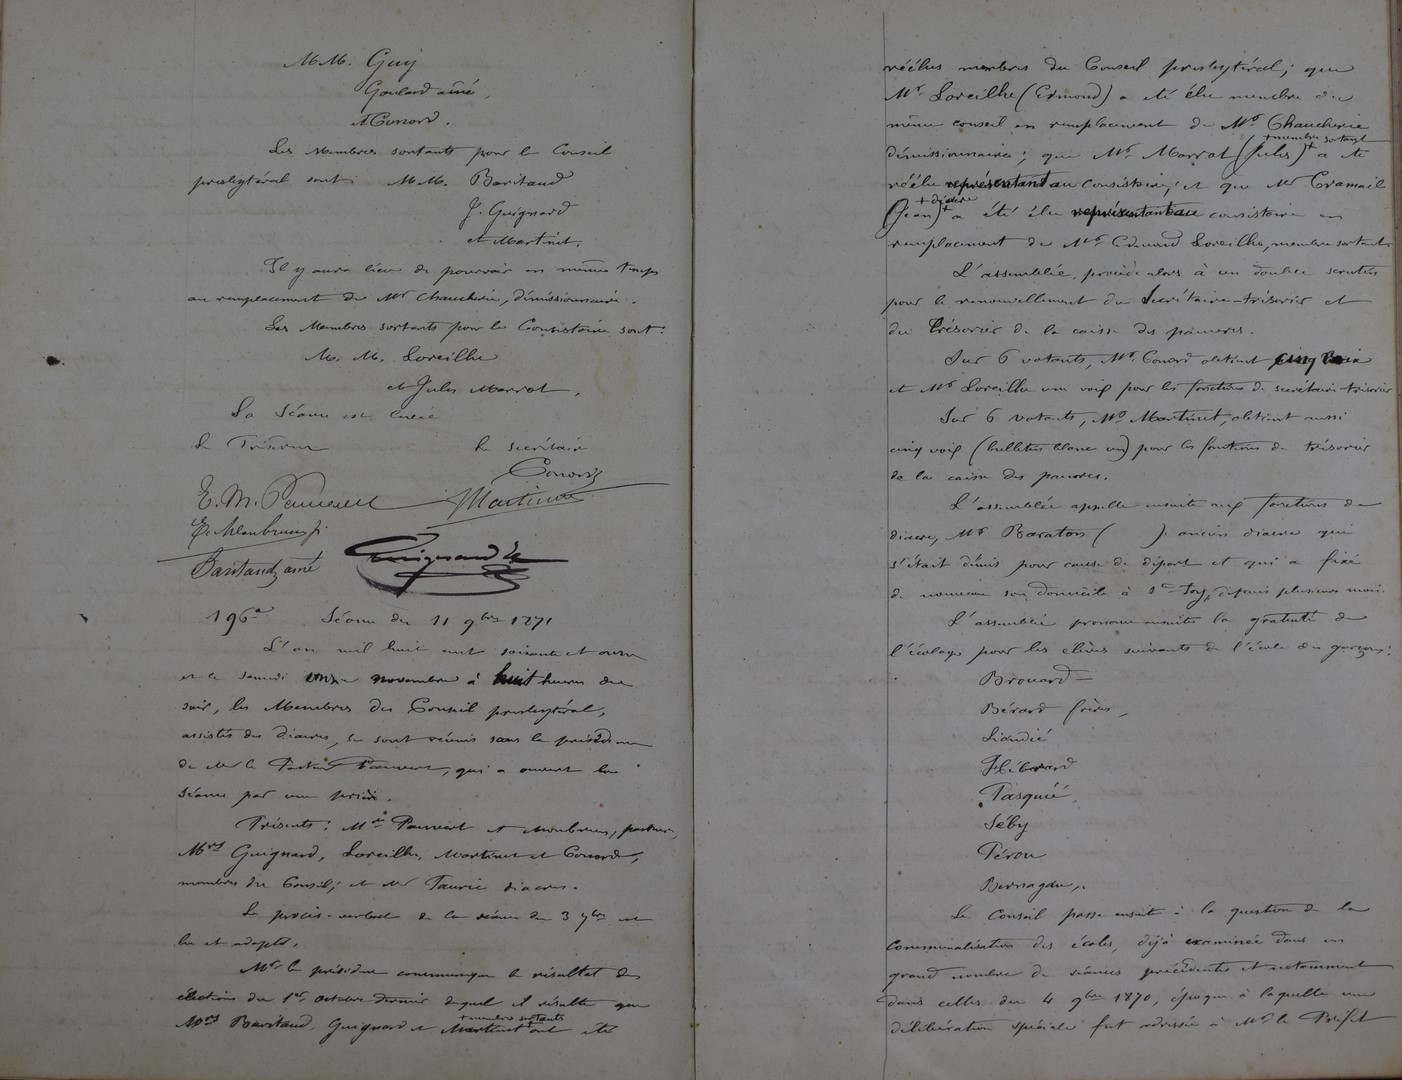 MM. Guy
Goulard aîné,
et Conord.
Les Membres sortants pour le Conseil
presbytéral sont : MM. Baritaud
J. Guignard
et Martinet.
Il y aura lieu de pourvoir en même temps
au remplacement de Mr Chaucherie, démissionnaire.
Les Membres sortants pour le Consistoire sont :
M. M. Loreilhe
et Jules Marrot.
La Séance est levée
Le Trésorier Le secrétaire
Conord
E. M. Pauvert Martinet
Baritaud aîné Guignard
196e Séance du 11 9bre 1871
L'an mil huit cent soixante et onze
et le samedi onze novembre à huit heures du
soir, les Membres du Conseil presbytéral,
assistés des diacres, se sont réunis sous la présidence
de Mr le Pasteur Pauvert, qui a ouvert la
séance par une prière.
Présents : Mrs Pauvert et Monbrun, pasteurs,
Mrs Guignard, Loreilhe, Martinet et Conord,
membres du Conseil; et Mr Faurie diacre.
Le procès-verbal de la séance du 3 7bre est
lu et adopté.
Mr le président communique le résultat des
élections du 1er octobre dernier duquel il résulte que
+ membres sortants
Mrs Baritaud, Guignard et Martinet + ont été
réélus membres du Conseil presbytéral; que
Mr Loreilhe (Edmond) a été élu membre du
même conseil en remplacement de Mr Chaucherie
+ membre sortant
démissionnaire; que Mr Marrot (Jules) + a été
réélu représentant au consistoire; et que Mr Cramail
+ diacre
(Jean) + a été élu représentant au consistoire en
remplacement de Mr Edmond Loreilhe, membre sortant
L'assemblée, procède alors à un double scrutin
pour le renouvellement du Secrétaire-trésorier et
du Trésorier de la caisse des pauvres.
Sur 6 votants, Mr Conord obtient cinq voix
et Mr Loreilhe une voix pour les fonctions de secrétaire-trésorier
Sur 6 votants, Mr Martinet, obtient aussi
cinq voix (bulletin blanc un) pour les fonctions de trésorier
de la caisse des pauvres.
L'assemblée appelle ensuite aux fonctions de
diacre, Mr Baraton ( ) ancien diacre qui
s'était démis pour cause de départ et qui a fixé
de nouveau son domicile à Ste Foy, depuis plusieurs mois.
L'assemblée prononce ensuite la gratuité de
l'écolage pour les élèves suivants de l'école des garçons :
Brouard
Bérard frères,
Liandié
Hébrard
Pasquié
Séby
Péron
Bernagdu,.
Le Conseil passe ensuite à la question de la
communalisation des écoles, déjà examinée dans un
grand nombre de séances précédentes et notamment
dans celles du 4 9bre 1870, époque à laquelle une
délibération spéciale fut adressée à Mr le Préfet